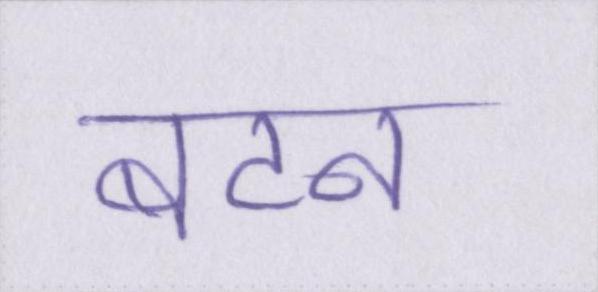 बटन